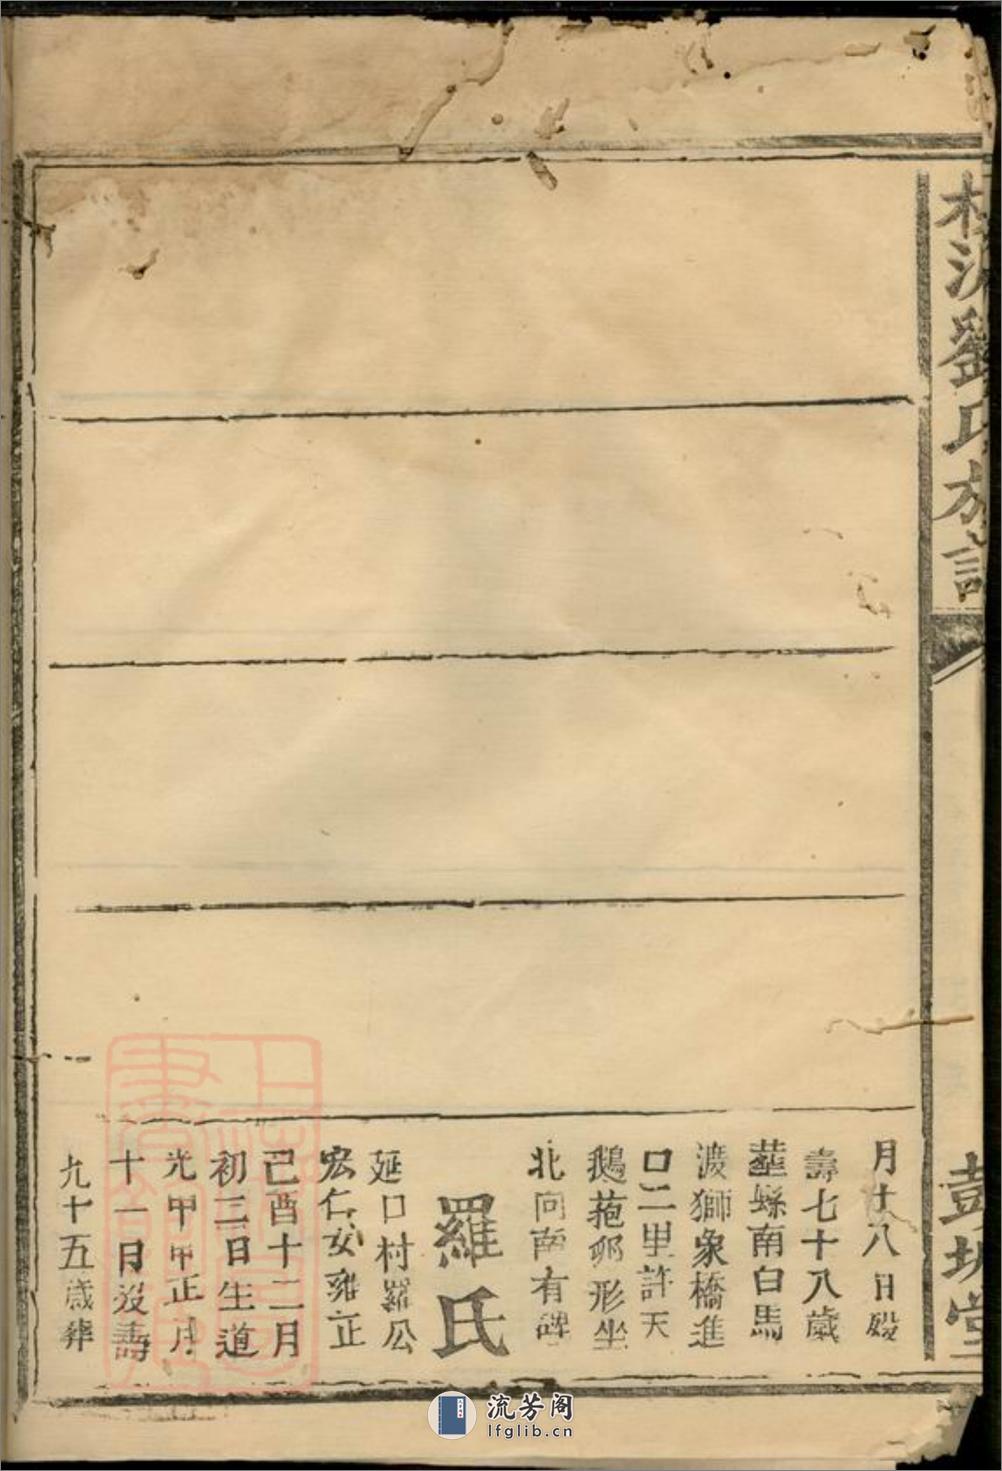 劉氏族譜
彭城堂
月十八日歿
壽七十八歲
葬縣南白馬
渡獅象橋進
口二里許天
鵝菢卵形坐
北向南有碑
羅氏
延口村羅公
宏仁女雍正
己酉十二月
初三日生道
光甲申正月
十一日歿壽
九十五歲葬
流芳阁
lfglib.cn